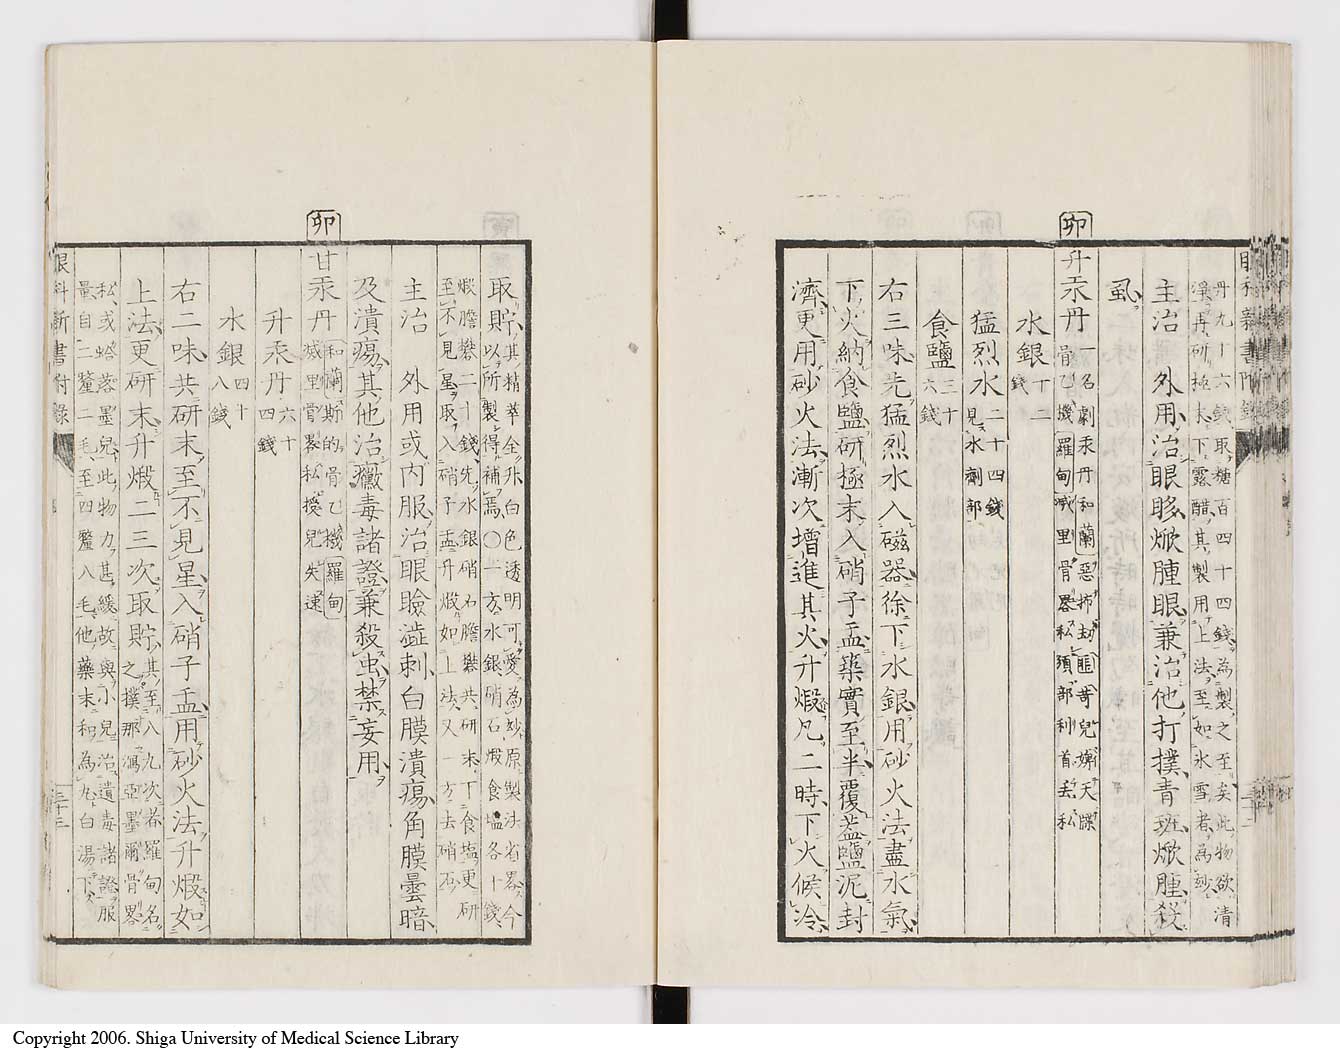 丹九十六錢取糖百四十四錢為製之至矣此物欲清
淨再研極末下露醋其製用上法至如氷雪者為玅
主治 外用治眼眵焮腫眼兼治他打撲青班焮腫殺
虱
卯
升汞丹 一名劇汞丹和蘭
骨乙機羅甸減里骨畧私頭部利首丢私
水銀 十二錢
猛烈水 二十四錢 見水劑部
食鹽 三十六錢
右三味先猛烈水入磁器徐下水銀用砂火法盡水氣
下火納食鹽研極末入硝子盂築實至半覆蓋鹽泥封
濟更用砂火法漸次增進其火升煆凡二時下火候冷
取貯其精萃全升白色透明可愛為玅原製法省畧今
以所製得補焉〇一方水銀硝石煆食塩各十錢
煆膽礬二十錢先水銀硝石膽礬共研末下食塩更研
至不見星取入硝子盂升煆如上法又一方去硝石
主治 外用或內服治眼瞼澁刺白膜潰瘍角膜曇暗
及潰瘍其他治黴毒諸證兼殺虫禁妄用
卯
甘汞丹 和蘭斯的骨乙機羅甸
減里骨畧私授兒失速
升汞丹 六十四錢
水銀 四十八錢
右二味共研末至不見星入硝子盂用砂火法升煆如
上法更研末升煆二三次取貯 其至八九次者羅甸名
之撲那瀉亞墨爾骨畧
私或蛤蒞墨兒此物力甚緩故與小兒治遺毒諸證服
量自二釐二毛至四釐八毛他藥末和為丸白湯下
眼科新書附錄
三十三
Copyright 2006. Shiga University of Medical Science Library